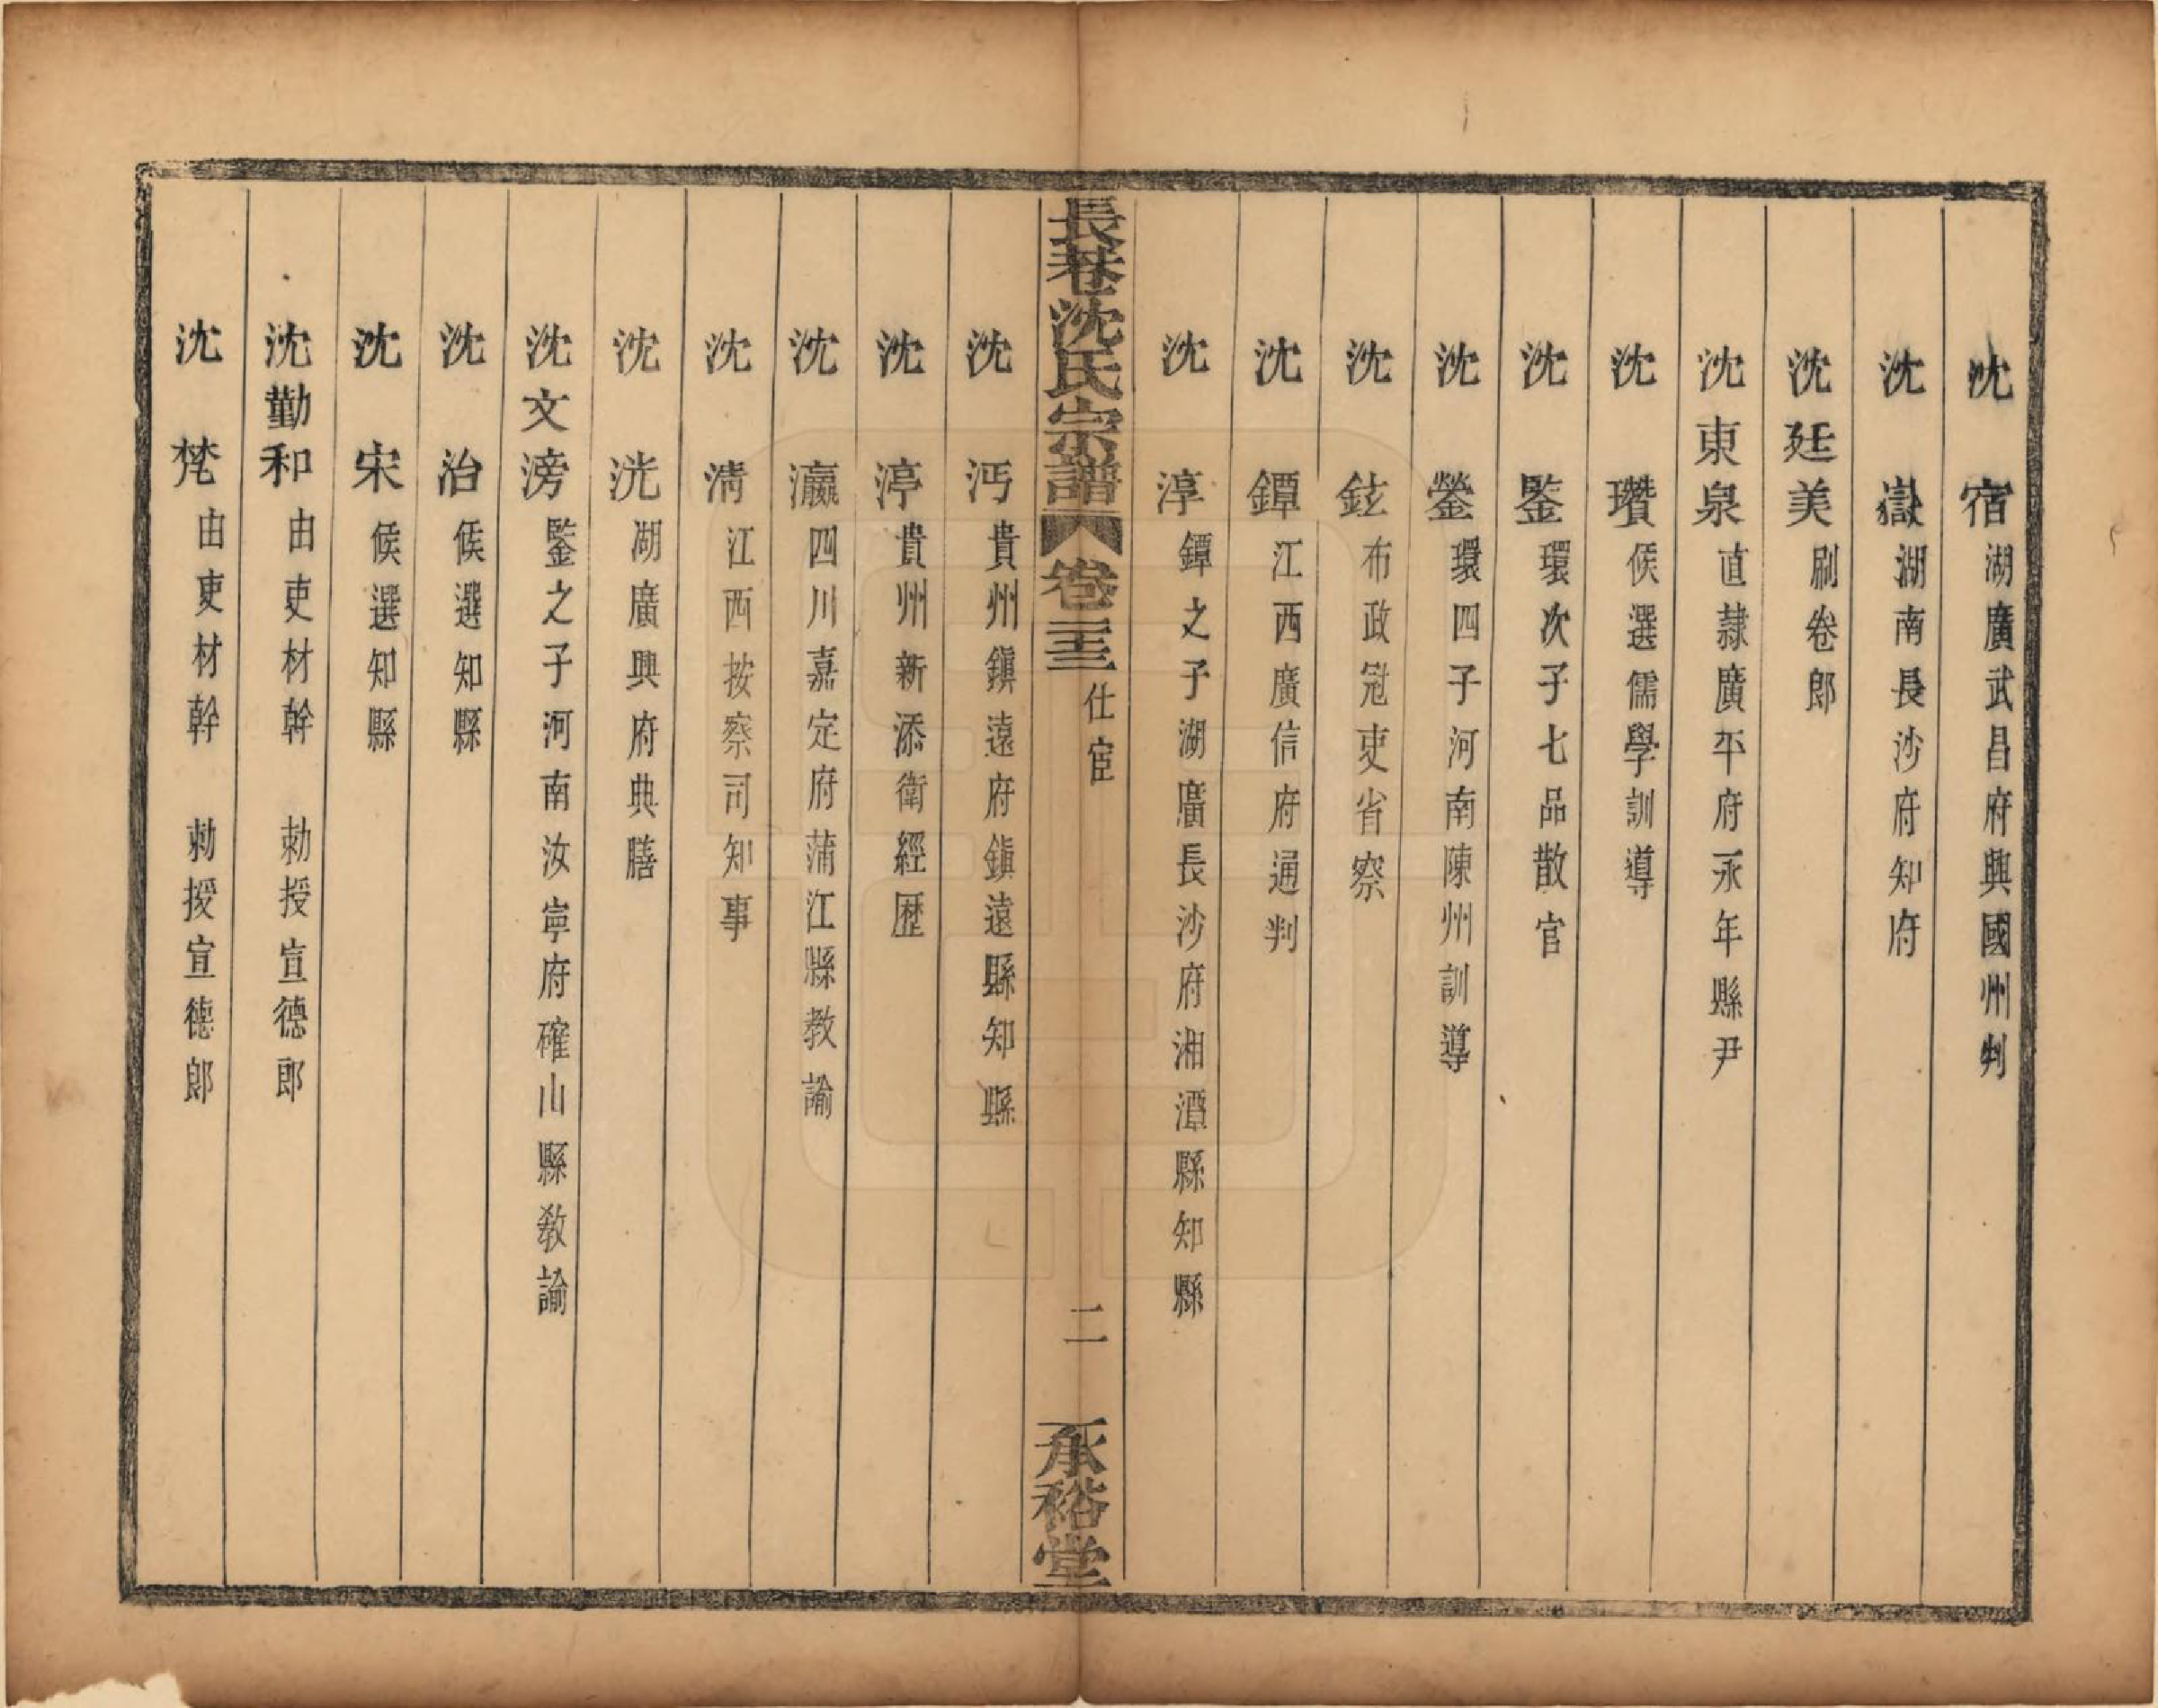 沈　宿湖廣武昌府興國州判
沈　嶽湖南長沙府知府
沈廷美刷卷郎
沈東泉直隷廣平府永年縣尹
沈　瓚候選儒學訓導
沈　鋻環次子七品散官
沈　鎣環四子河南陳州訓導
沈　鉉布政冠吏省察
沈　鐔江西廣信府通判
沈　淳鐔之子湖廣長沙府湘潭縣知縣
長巷沈氏宗譜 卷三十三 仕宦 二 承裕堂
沈　沔貴州鎭遠府鎭遠縣知縣
沈　渟貴州新添衛經歴
沈　瀛四川嘉定府蒲江縣教諭
沈　清江西按察司知事
沈　洸湖廣興府典膳
沈文滂鋻之子河南汝寧府確山縣教諭
沈　治候選知縣
沈　宋候選知縣
沈勤和由吏材幹　勅授宣德郎
沈　梵由吏材幹　勅授宣德郎